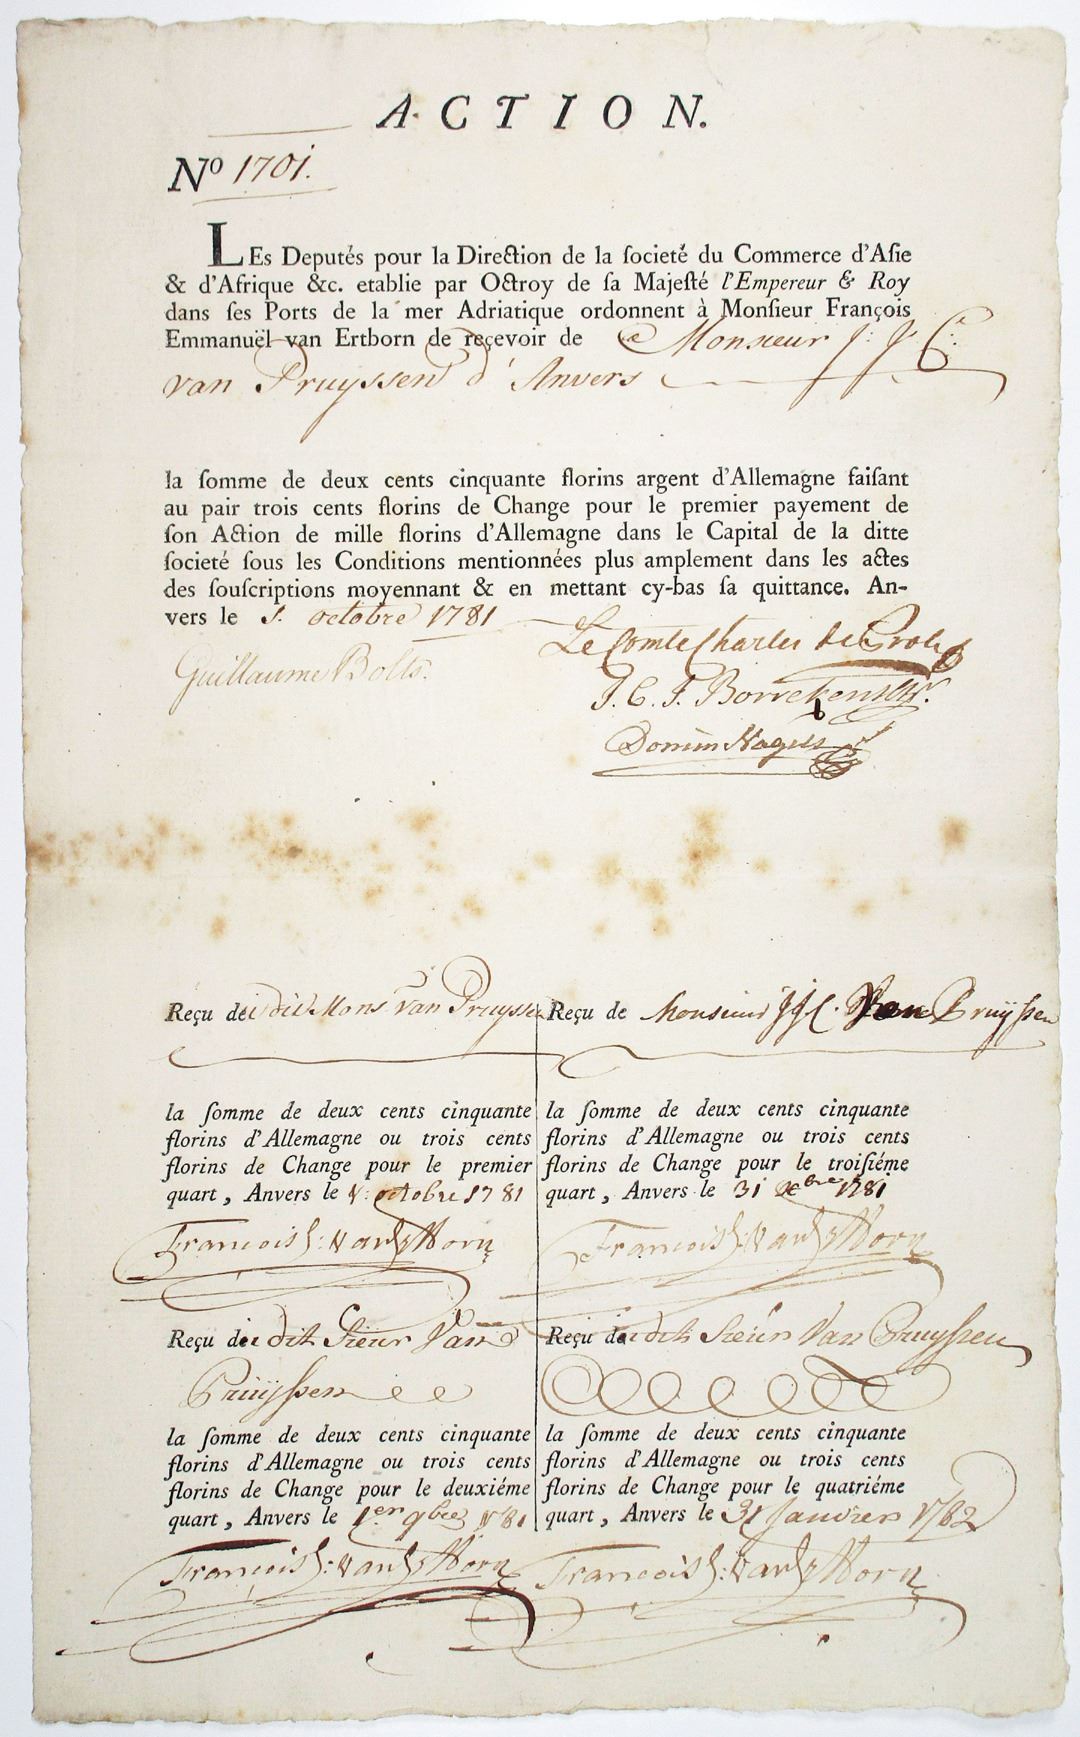 ACTION.
Nº 1701.
LEs Deputés pour la Direction de la ſocieté du Commerce d'Aſie
& d'Afrique &c. etablie par Octroy de ſa Majeſté l'Empereur & Roy
dans ſes Ports de la mer Adriatique ordonnent à Monſieur François
Emmanuël van Ertborn de reçevoir de Monsieur J: J. C.
van Pruyssen d'Anvers
la ſomme de deux cents cinquante florins argent d'Allemagne faiſant
au pair trois cents florins de Change pour le premier payement de
ſon Action de mille florins d'Allemagne dans le Capital de la ditte
ſocieté ſous les Conditions mentionnées plus amplement dans les actes
des ſouſcriptions moyennant & en mettant cy-bas ſa quittance. An-
vers le octobre 1781
Le Comte Charles de Proli
Guillaume Bolts.
J. C. J. Borrekens
Domin Nagels
Reçu de dit Mons van Pruyssen
la ſomme de deux cents cinquante
florins d'Allemagne ou trois cents
florins de Change pour le premier
quart, Anvers le octobre 1781
François E: van Ertborn
Reçu de Monsieur JJC. Van Pruÿſsen
la ſomme de deux cents cinquante
florins d'Allemagne ou trois cents
florins de Change pour le troiſiéme
quart, Anvers le 31 Xbre 1781
François E: van Ertborn
Reçu de dit Sieur Van
Pruÿſsen
la ſomme de deux cents cinquante
florins d'Allemagne ou trois cents
florins de Change pour le deuxiéme
quart, Anvers le 1er 9bre 1781
François E: van Ertborn
Reçu de dit Sieur Van Pruyſsen
la ſomme de deux cents cinquante
florins d'Allemagne ou trois cents
florins de Change pour le quatriéme
quart, Anvers le 31 Janvier 1782
François E: van Ertborn